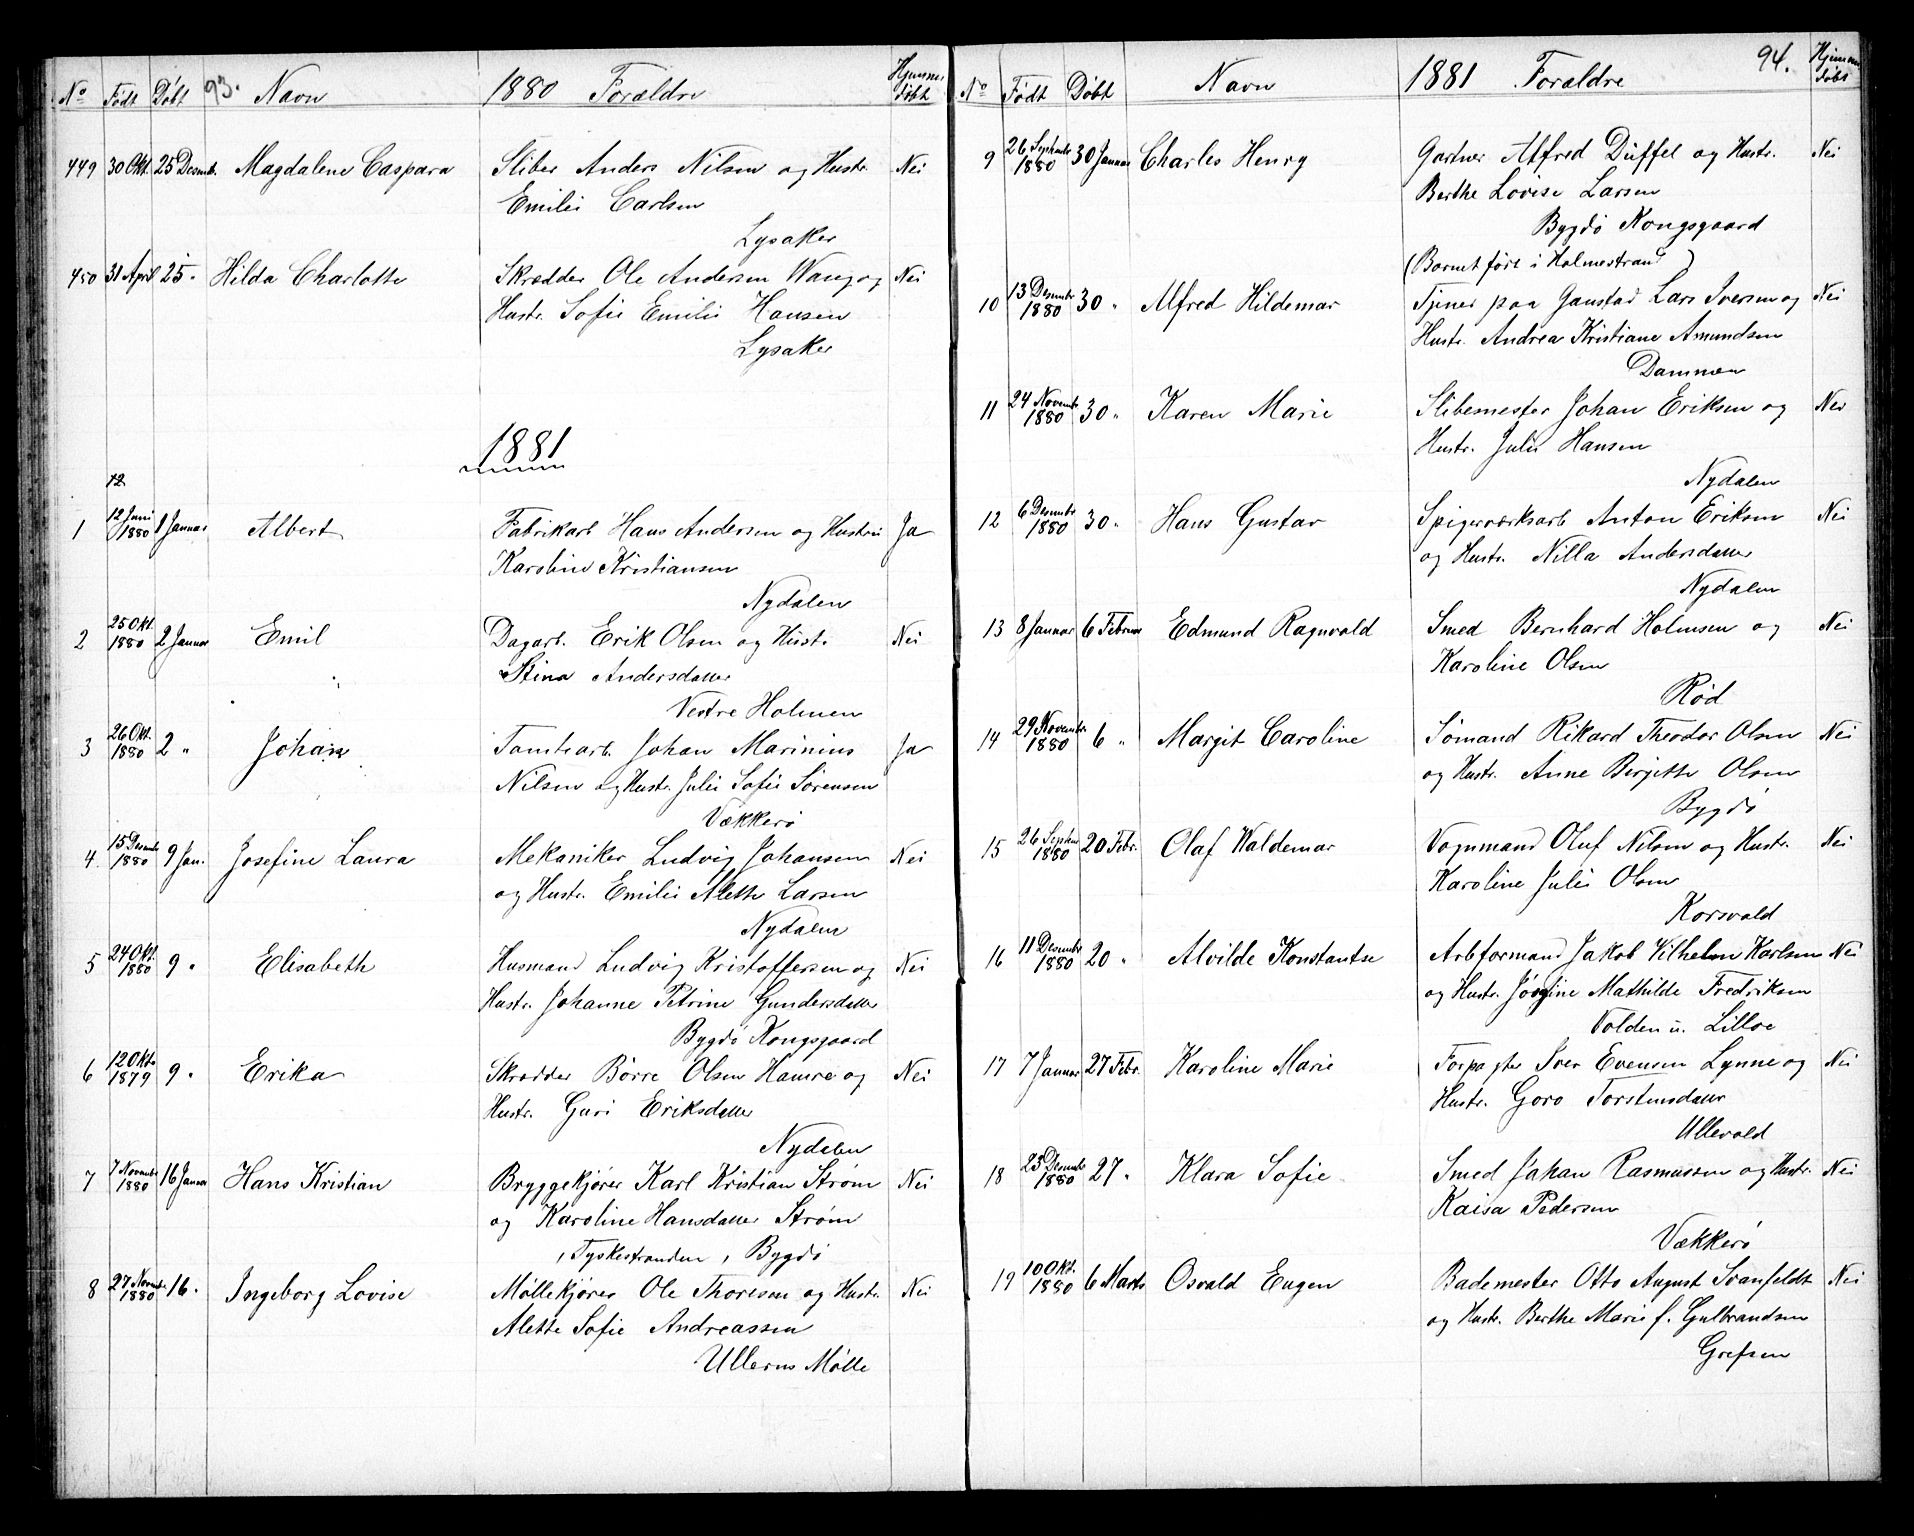 93.
No Født Døbt Navn 1880 Forældre Hjemmedøbt
449 30 Okt. 25 Desemb. Magdalene Caspara Sliber Anders Nilsen og Hustr. Nei
Emilie Carlsen
Lysaker
450 31 April 25 " Hilda Charlotte Skrædder Ole Andersen Wang og Nei
Hustr. Sofie Emilie Hansen
Lysaker
1881
12
1 12 Juni 1880 1 Januar Albert Fabrikarb. Hans Andersen og Hustru Ja
Karoline Kristiansen
Nydalen
2 25 Okt. 1880 2 Januar Emil Dagarb. Erik Olsen og Hustr. Nei
Stina Andersdatter
Vestre Holmen
3 26 Okt. 1880 2 " Johan Tomtearb. Johan Marinius Ja
Nilsen og Hustr. Julie Sofie Sørensen
Vækkerø
4 15 Desemb 1880 9 Jan. Josefine Laura Mekaniker Ludvig Johansen Nei
og Hustr. Emilie Alette Larsen
Nydalen
5 24 Okt. 1880 9 " Elisabeth Husmand Ludvig Kristoffersen og Nei
Hustr. Johanne Petrine Gundersdatter
Bygdø Kongsgaard
6 12 Okt. 1879 9 " Erika Skrædder Børre Olsen Hamre og Nei
Hustr. Guri Eriksdatter
Nydalen
7 7 Novembr 1880 16 Januar Hans Kristian Bryggekjører Karl Kristian Strøm Nei
og Karoline Hansdatter Strøm
, Tyskestranden , Bygdø
8 27 Novembr. 1880 16 " Ingeborg Lovise Møllekjører Ole Thoresen og Hustr. Nei
Alette Sofie Andreassen
Ullerns Mølle
94.
No Født Døbt Navn 1881 Forældre Hjemmedøbt
9 26 Septembr 1880 30 Januar Charles Henry Gartner Alfred Düffel og Hustr. Nei
Berthe Lovise Larsen
Bygdø Kongsgaard
(Barnet født i Holmestrand)
10 13 Desembr 1880 30 " Alfred Hildemar Tjener paa Gaustad Lars Iversen og Nei
Hustr. Andrea Kristiane Amundsen
Dammen
11 24 Novembr 1880 30 " Karen Marie Slibemester Johan Eriksen og Nei
Hustr. Julie Hansen
Nydalen
12 6 Desembr 1880 30 " Hans Gustav Spigerværksarb Anton Eriksen Nei
og Hustr. Nilla Andersdatter
Nydalen
13 8 Januar 6 Februar Edmund Ragnvald Smed Bernhard Holmsen og Nei
Karoline Olsen
Rød
14 29 Novembr. 1880 6 " Margit Caroline Sømand Rikard Theodor Olsen Nei
og Hustr. Anne Birgitte Olsen
Bygdø
15 26 Septem 1880 20 Febr. Olaf Waldemar Vognmand Oluf Nilsen og Hustr. Nei
Karoline Julie Olsen
Korsvold
16 11 Desembr 1880 20 " Alvilde Konstantse Arbformand Jakob Vilhelm Karlsen Nei
og Hustr. Jørgine Mathilde Fredriksen
Volden u. Lilloe
17 7 Januar 27 Febr. Karoline Marie Forpagter Iver Evensen Lynne og Nei
Hustr. Goro Torstensdatter
Ullevold
18 23 Desembr 1880 27 " Klara Sofie Smed Johan Rasmussen og Hustr. Nei
Kaisa Pedersen
Vækkerø
19 10 Okt. 1880 6 Marts Osvald Eugen Bademester Otto August Svanfeldt Nei
og Hustr. Berthe Marie f. Gulbrandsen
Grefsen